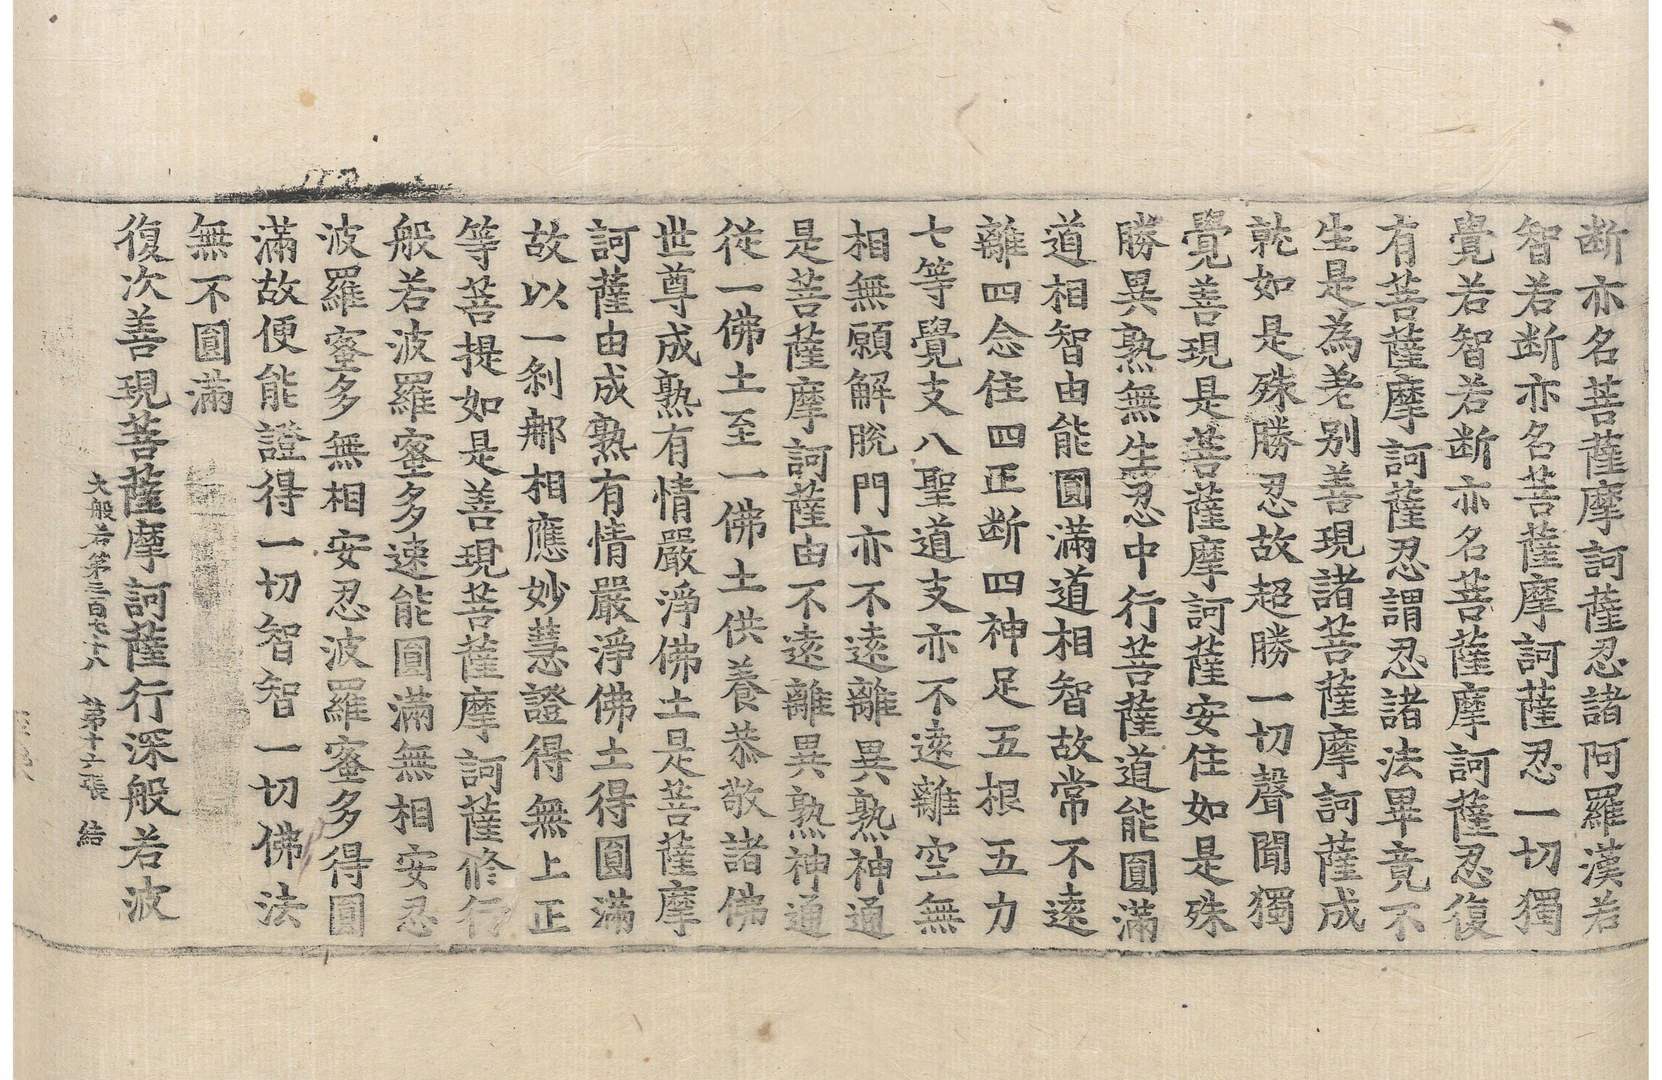 断亦名菩薩摩訶薩忍諸阿羅漢若
智若断亦名菩薩摩訶薩忍一切獨
覺若智若断亦名菩薩摩訶薩忍復
有菩薩摩訶薩忍謂忍諸法畢竟不
生是為差别善現諸菩薩摩訶薩成
就如是殊勝忍故超勝一切聲聞獨
覺善現是菩薩摩訶薩安住如是殊
勝異熟無生忍中行菩薩道能圓滿
道相智由能圓滿道相智故常不遠
離四念住四正断四神足五根五力
七等覺支八聖道支亦不遠離空無
相無願解脫門亦不遠離異熟神通
是菩薩摩訶薩由不遠離異熟神通
從一佛土至一佛土供養恭敬諸佛
世尊成熟有情嚴淨佛土是菩薩摩
訶薩由成熟有情嚴淨佛土得圓滿
故以一刹那相應妙慧證得無上正
等菩提如是善現菩薩摩訶薩修行
般若波羅蜜多速能圓滿無相安忍
波羅蜜多無相安忍波羅蜜多得圓
滿故便能證得一切智智一切佛法
無不圓滿
復次善現菩薩摩訶薩行深般若波
大般若第三百七十八 第十六張 結